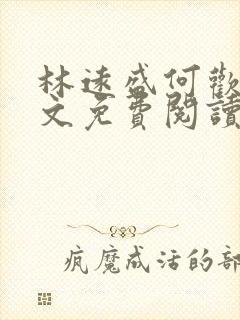 林遠盛何歡
文免費閱讀
瘋魔成活的部